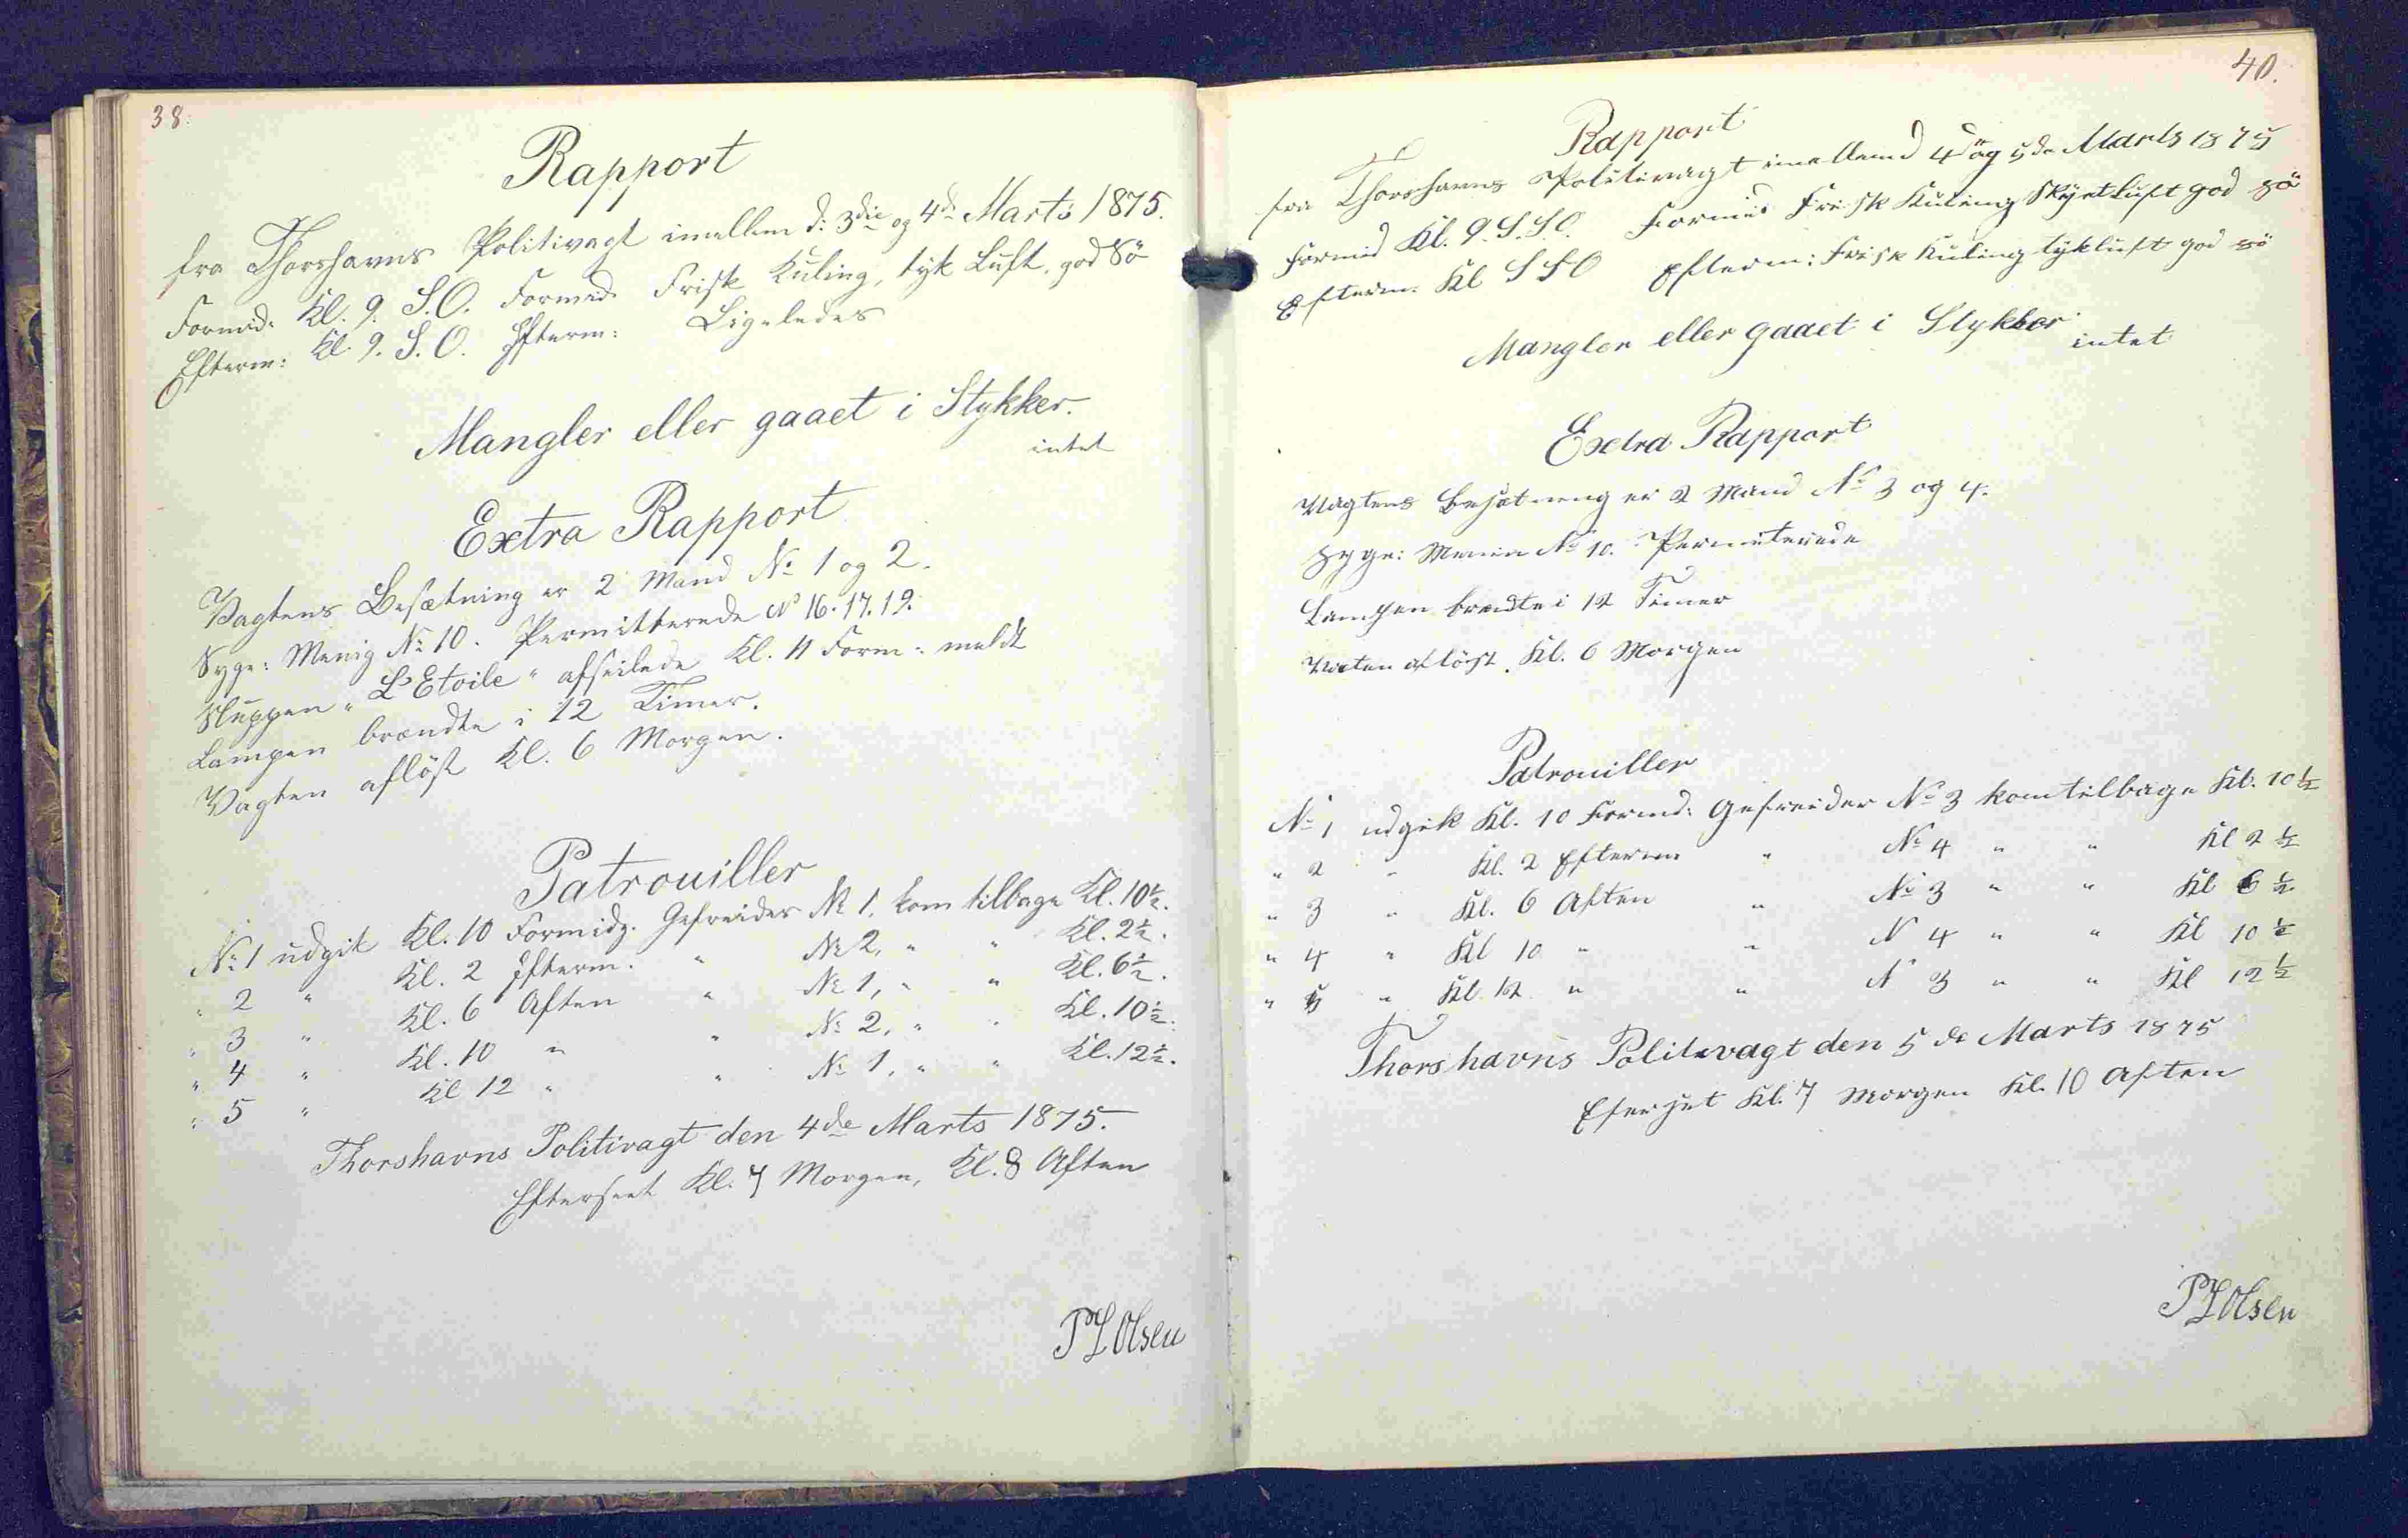 38.
Rapport
fra Thorshavns Politivagt imellem d: 3die og 4de Marts 1875.
Formid: Kl. 9. S.O. Formid: Frisk Kuling, tyk Luft, god Sö
Efterm: Kl. 9. S.O. Efterm: Ligeledes
Mangler eller gaaet i Stykker.
intet
Extra Rapport
Vagtens Besætning er 2 Mand No 1 og 2.
Syge: Menig No 10. Permitterede No 16. 17. 19.
Sluppen „L'Etoile" afseilede Kl. 11 Form: meldt
Lampen brændte i 12 Timer.
Vagten aflöst Kl. 6 Morgen.
Patrouiller
No 1 udgik Kl. 10 Formidg. Gefreider No 1. kom tilbage Kl. 10½.
" 2 " Kl. 2 Efterm. " No 2, " " Kl. 2½.
" 3 " Kl. 6 Aften " No 1, " " Kl. 6½.
" 4 " Kl. 10 " " No 2, " " Kl. 10½.
" 5 " Kl 12 " " No 1, " " Kl. 12½.
Thorshavns Politivagt den 4de Marts 1875.
Efterseet Kl. 7 Morgen, Kl. 8 Aften
P Olsen
40.
Rapport
fra Thorshavns Politivagt imellemd 4d og 5de Marts 1875
Formid Kl. 9. S.S.O. Formid Frisk Kuling Skyetluft god sö
Efterm. Kl S S O Efterm: Frisk Kuling tykluft god sö
Mangler eller gaaet i Stykker
intet
Extra Rapport
Vagtens Besætning er 2 Mand No 3 og 4.
Syge: No 10. Permiterede
Lampen brændte i 12 Timer
aflöst. Kl. 6 Morgen
Patrouiller
No 1 udgik Kl. 10 Formd: Gefreider No 3 komtilbage Kl. 10½
" 2 " Kl. 2 Efterm " No 4 " " Kl 2½
" 3 " Kl. 6 Aften " No 3 " " Kl 6½
" 4 " Kl 10 " " N 4 " " Kl 10½
" 5 " Kl. 12 " " N 3 " " Kl 12½
Thorshavns Politivagt den 5de Marts 1875
Kl. 7 Morgen Kl. 10 Aften
P Olsen